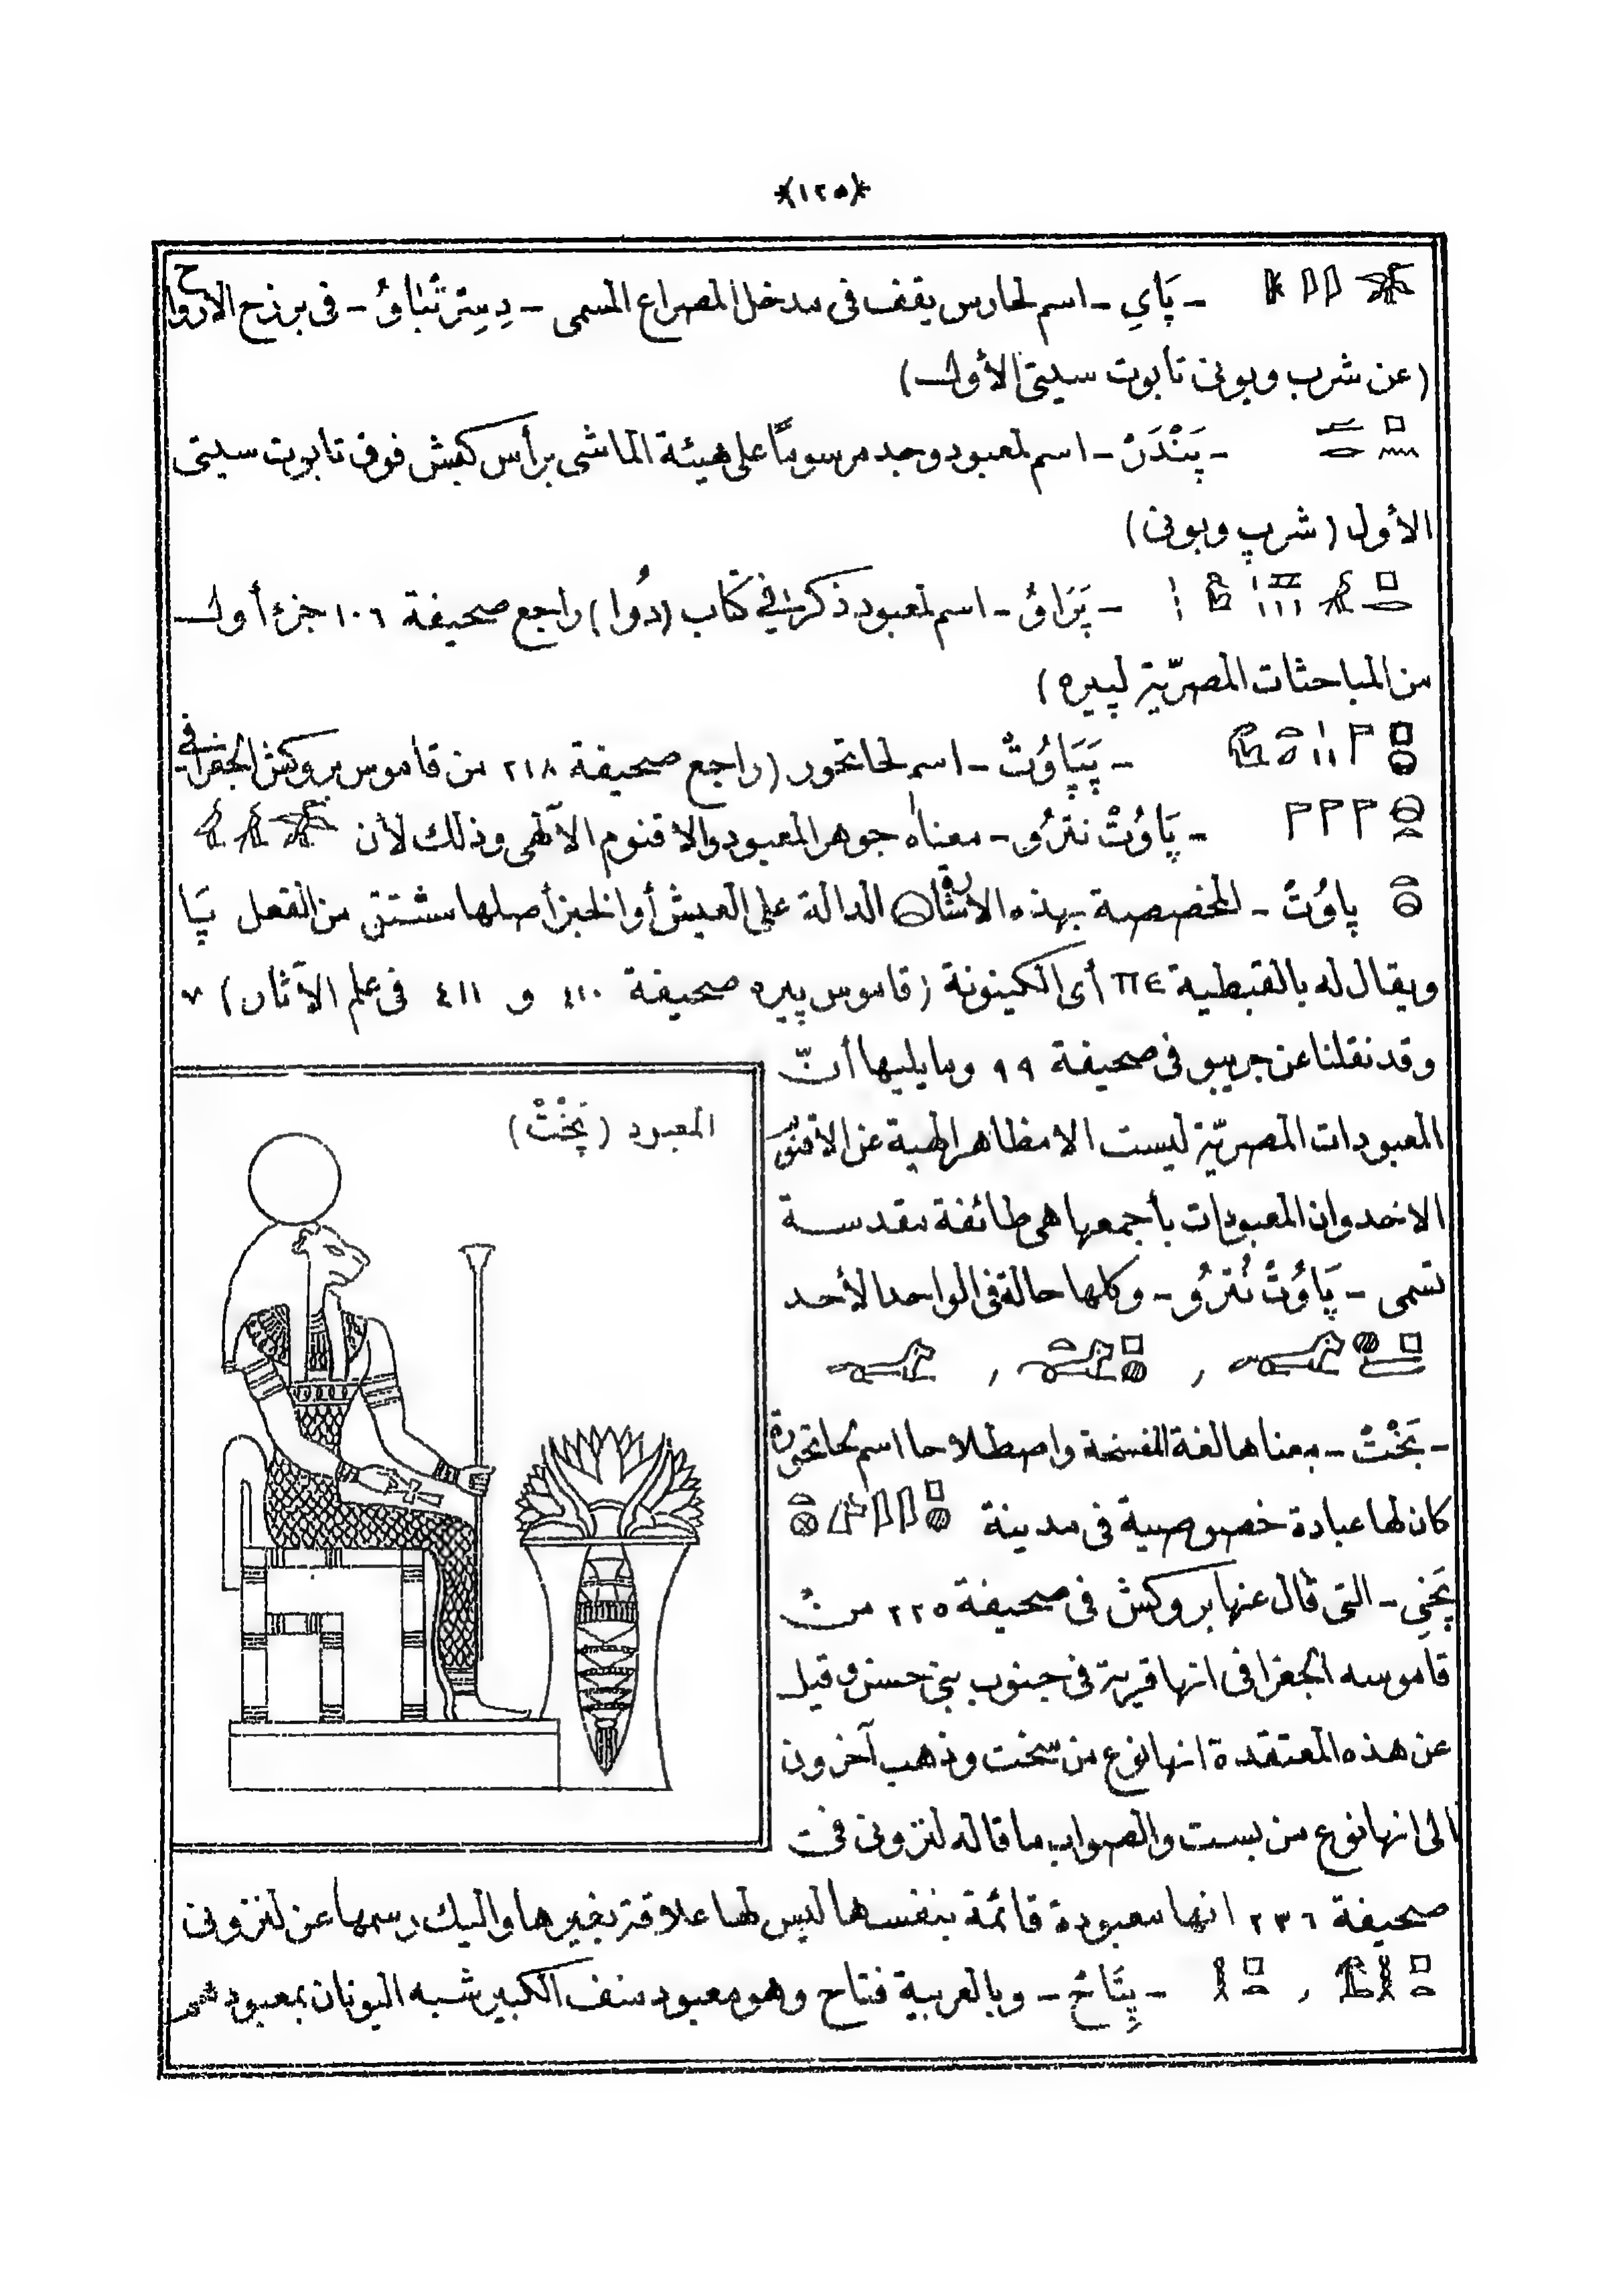 *(١٢٥)*
- پَاي - اسم لحارس يقف فى مدخل المصراع المسمى - دِسِتِرْتْبَاوُ - فى برزح الارواح
(عن شرب وبونى تابوت سيتى الأول)
- پَنْدَرْ - اسم لمعبود وجد مرسوما على هيئة الماشى برأس كبش فوق تابوت سيتى
الأول (شرپ وبونى)
- پَرَاوُ - اسم لمعبود ذكر فى كتاب (دُوا) راجع صحيفة ١٠٦ جزء أول
من المباحثات المصريّة لپيره)
- پَپَاوُتْ - اسم لحاتحور (راجع صحيفة ٢١٨ من قاموس بروكش الجغرافى
- پَاوُتْ نتْرُو - معناه جوهر المعبود والاقنوم الآلهى وذلك لأن
پاوُتْ - المخصصة بهذه الاشارة الدالة على العيش أو الخبز أصلها مشتق من الفعل پَا
ويقال له بالقبطية ⲡⲉ أى الكينونة (قاموس پيره صحيفة ٤١٠ و ٤١١ فى علم الآثار)
وقد نقلنا عن جريبو فى صحيفة ٩٩ وما يليها أنّ
المعبودات المصريّة ليست الا مظاهر الهية عن الاقنوم
الاحد وان المعبودات بأجمعها هى طائفة مقدسة
تسمى - پَاوُتْ نُتْرُو - وكلها حالة فى الواحد الأحد
- پَخْتْ - معناها لغة المفسخة واصطلاحا اسم لحاتحورة
كان لها عبادة خصوصية فى مدينة
پَخِى - التى قال عنها بروكش فى صحيفة ٢٢٥ من
قاموسه الجغرافى انها قرية فى جنوب بنى حسن وقيل
عن هذه المعتقدة انها نوع من سخت وذهب آخرون
الى انها نوع من بست والصواب ما قاله لنزونى فى
صحيفة ٢٣٦ انها معبودة قائمة بنفسها ليس لها علاقة بغيرها واليك رسمها عن لنزونى
- پِتَاحْ - وبالعربية فتاح وهو معبود منف الكبير شبه اليونان بمعبودهم
المعبود (پَخْتْ)